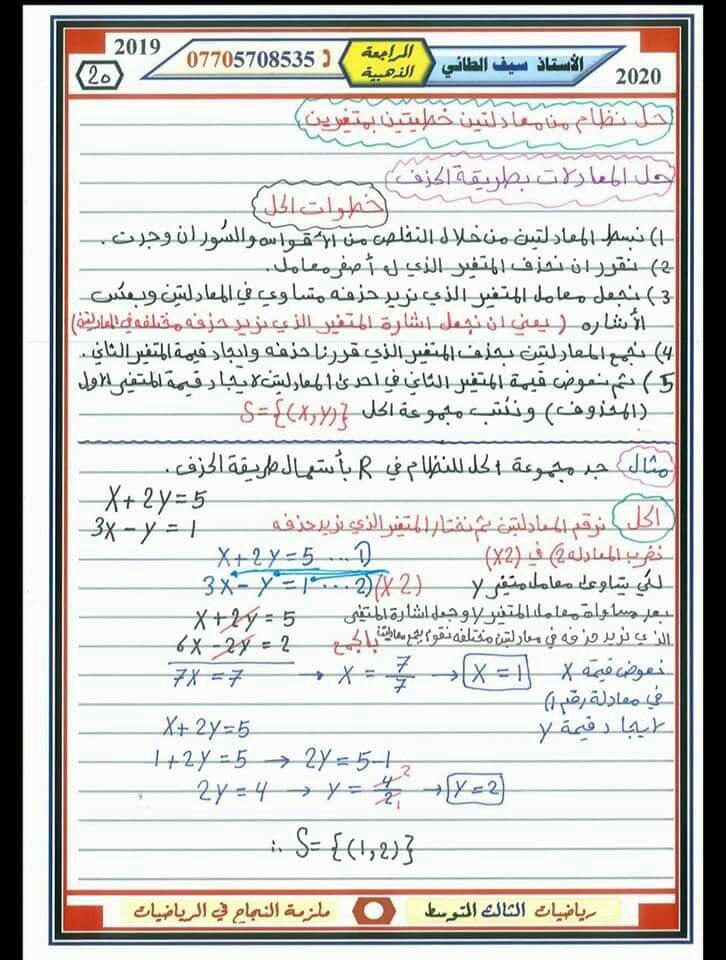 2019
الأستاذ سيف الطائي
المراجعة الذهبية
07705708535
2020
20
حل نظام من معادلتين خطيتين بمتغيرين
حل المعادلات بطريقة الحذف
خطوات الحل
1) نبسط المعادلتين من خلال التخلص من الأقواس والكسور ان وجدت.
2) نقرر ان نحذف المتغير الذي له أصغر معامل.
3) نجعل معامل المتغير الذي نريد حذفه متساوي في المعادلتين وبعكس
الأشاره (يعني ان نجعل اشارة المتغير الذي نريد حذفه مختلفه في المعادلتين)
4) نجمع المعادلتين بحذف المتغير الذي قررنا حذفه وايجاد قيمة المتغير الثاني.
5) ثم نعوض قيمة المتغير الثاني في احدى المعادلتين لايجاد قيمة المتغير الاول
(المحذوف) ونكتب مجموعة الحل S={(X,Y)}
مثال جد مجموعة الحل للنظام في R بأستعمال طريقة الحذف.
X+2Y=5
3X-Y=1
الحل نرقم المعادلتين ثم نختار المتغير الذي نريد حذفه
X+2Y=5 ...1)
نضرب المعادله 2) في (X2)
3X-Y=1 ...2) (X2)
لكي يتساوى معامل متغير Y
X+2Y=5
بعد مساواة معامل المتغير Y وجعل اشارة المتغير
6X-2Y=2
الذي نريد حذفه في معادلتين مختلفه نقوم بجمع معادلتين
بالجمع
7X=7 → X=7/7 → X=1
نعوض قيمة X
في معادلة رقم 1)
لايجاد قيمة Y
X+2Y=5
1+2Y=5 → 2Y=5-1
2Y=4 → Y=4/2 → Y=2
2
1
∴ S={(1,2)}
رياضيات الثالث المتوسط
ملزمة النجاح في الرياضيات